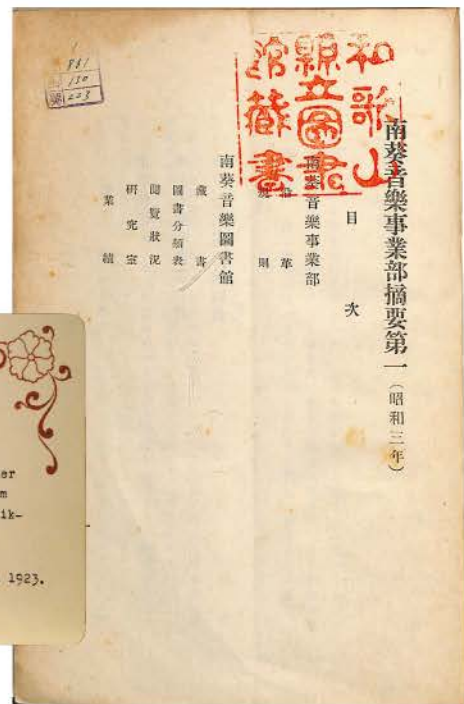 南葵音樂事業部摘要第一(昭和三年)
目次
南葵音樂事業部
沿革
規則
南葵音樂圖書館
藏書
圖書分類表
閲覽狀況
研究室
業績
和歌山
縣立圖書
館藏書
130
223
er
m
ik-
1923.